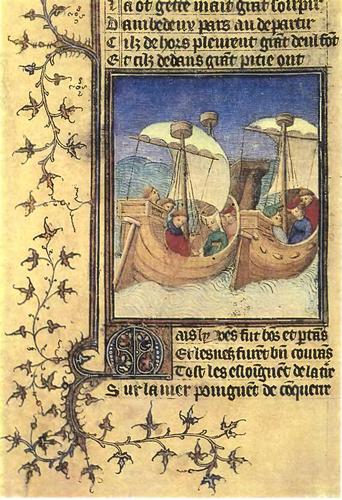 La ot gette maint grāt souspir
Dambedeux pars au departir
Cilz dehors pleurent grāt deul sōt
Et cilz dedans grāt pitie ont
Mais ly ves fut bos et plās
Et les nefz furēt bn courās
Tost les esloingnēt de la tīr
Sur la mer poingnēt de cōquerre